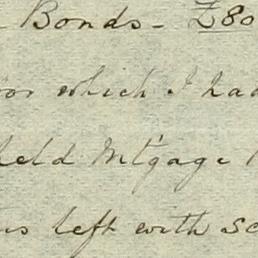 Bonds - £80
for which I had
held Mtgage
left with